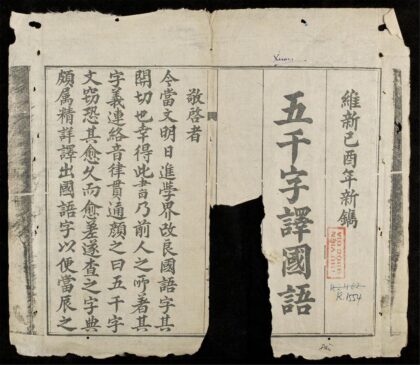 維新己酉年新鐫
五千字譯國語
R.1554
敬啓者
今當文明日進學界改良國語字其
関切也幸得此書乃前人之所著其
字義連絡音律貫通顏之曰五千字
文窃恐其愈久而愈差遂查之字典
頗属精詳譯出國語字以便當辰之